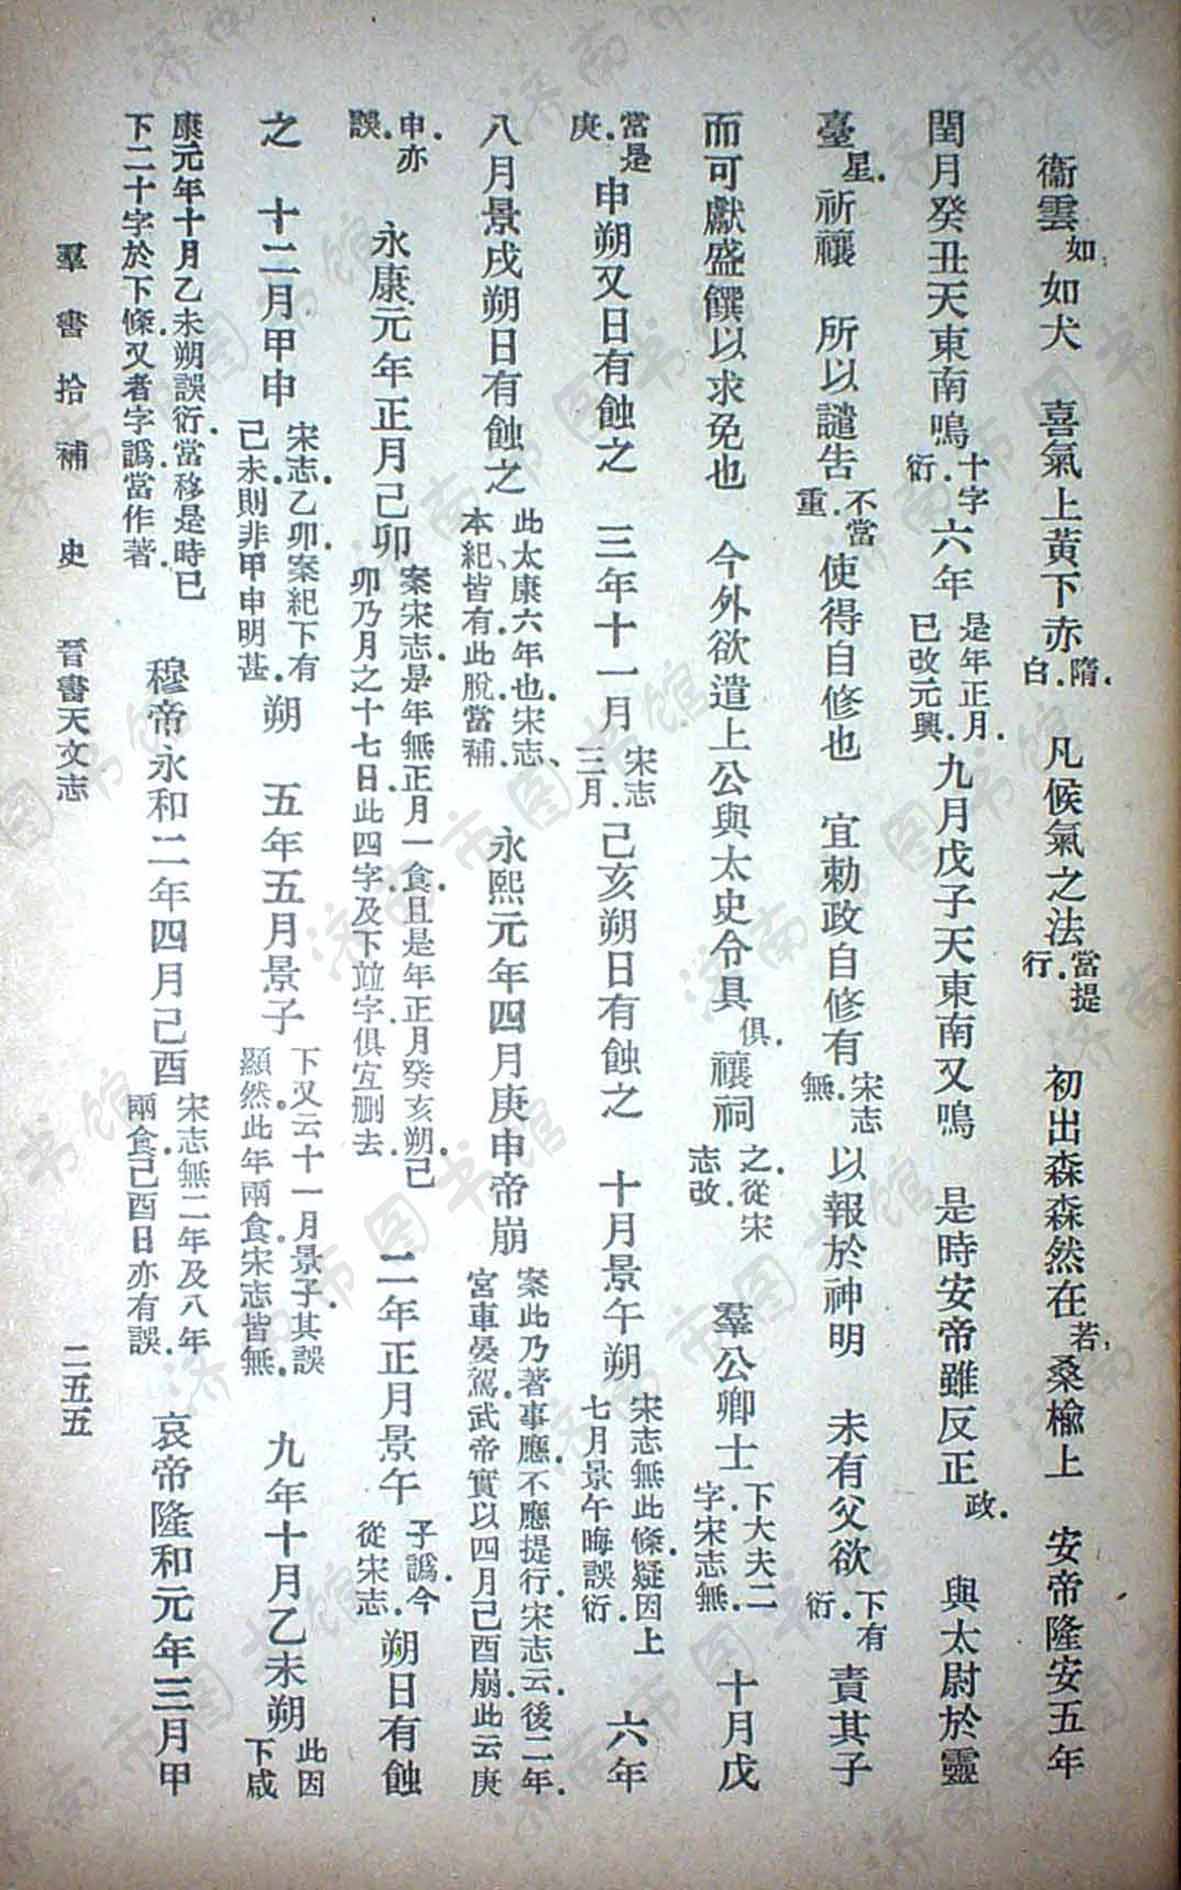 衞雲如如犬　喜氣上黃下赤隋白　凡候氣之法當提行　初出森森然在若桑榆上　安帝隆安五年
閏月癸丑天東南鳴十字衍六年是年正月已改元興九月戊子天東南又鳴　是時安帝雖反正政　與太尉於靈
臺星祈禳　所以譴告不當重使得自修也　宜勅政自修有宋志無以報於神明　未有父欲下有衍責其子
而可獻盛饌以求免也　今外欲遣上公與太史令具俱禳祠之從宋志改　羣公卿士下大夫二字宋志無　十月戊
當是庚申朔又日有蝕之　三年十一月宋志三月己亥朔日有蝕之　十月景午朔宋志無此條疑因上七月景午晦誤衍　六年
八月景戌朔日有蝕之此太康六年也宋志、本紀皆有此脫當補　永熙元年四月庚申帝崩案此乃著事應不應提行宋志云後二年宮車晏駕武帝實以四月己酉崩此云庚
申亦誤　永康元年正月己卯案宋志是年無正月一食且是年正月癸亥朔己卯乃月之十七日此四字及下竝字俱宜刪去　二年正月景午子譌今從宋志朔日有蝕
之　十二月甲申宋志乙卯案紀下有己未則非甲申明甚朔　五年五月景子下又云十一月景子其誤顯然此年兩食宋志皆無　九年十月乙未朔此因下咸
康元年十月乙未朔誤衍當移是時已下二十字於下條又者字譌當作著　穆帝永和二年四月己酉宋志無二年及八年兩食己酉日亦有誤　哀帝隆和元年三月甲
羣書拾補　史　晉書天文志　二五五